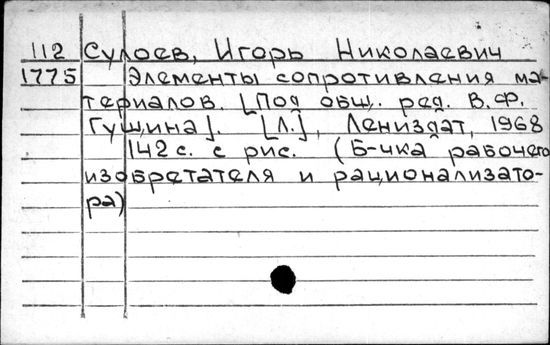 112 Сулоев, Игорь Николаевич
1775 Элементы сопротивления ма-
териалов. [Под общ. ред. В.Ф.
Гущина]. [Л.], Лениздат, 1968
142 с. с рис. (Б-чка рабочего
изобретателя и рационализато-
ра)